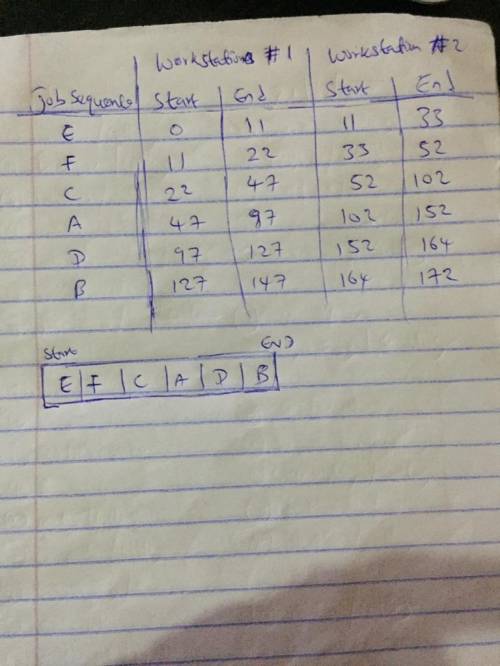 Workstation #1 Workstation #2
Job Sequence Start End Start End
E 0 11 11 33
F 11 22 33 52
C 22 47 52 102
A 47 97 102 152
D 97 127 152 164
B 127 147 164 172
Start End
E F C A D B